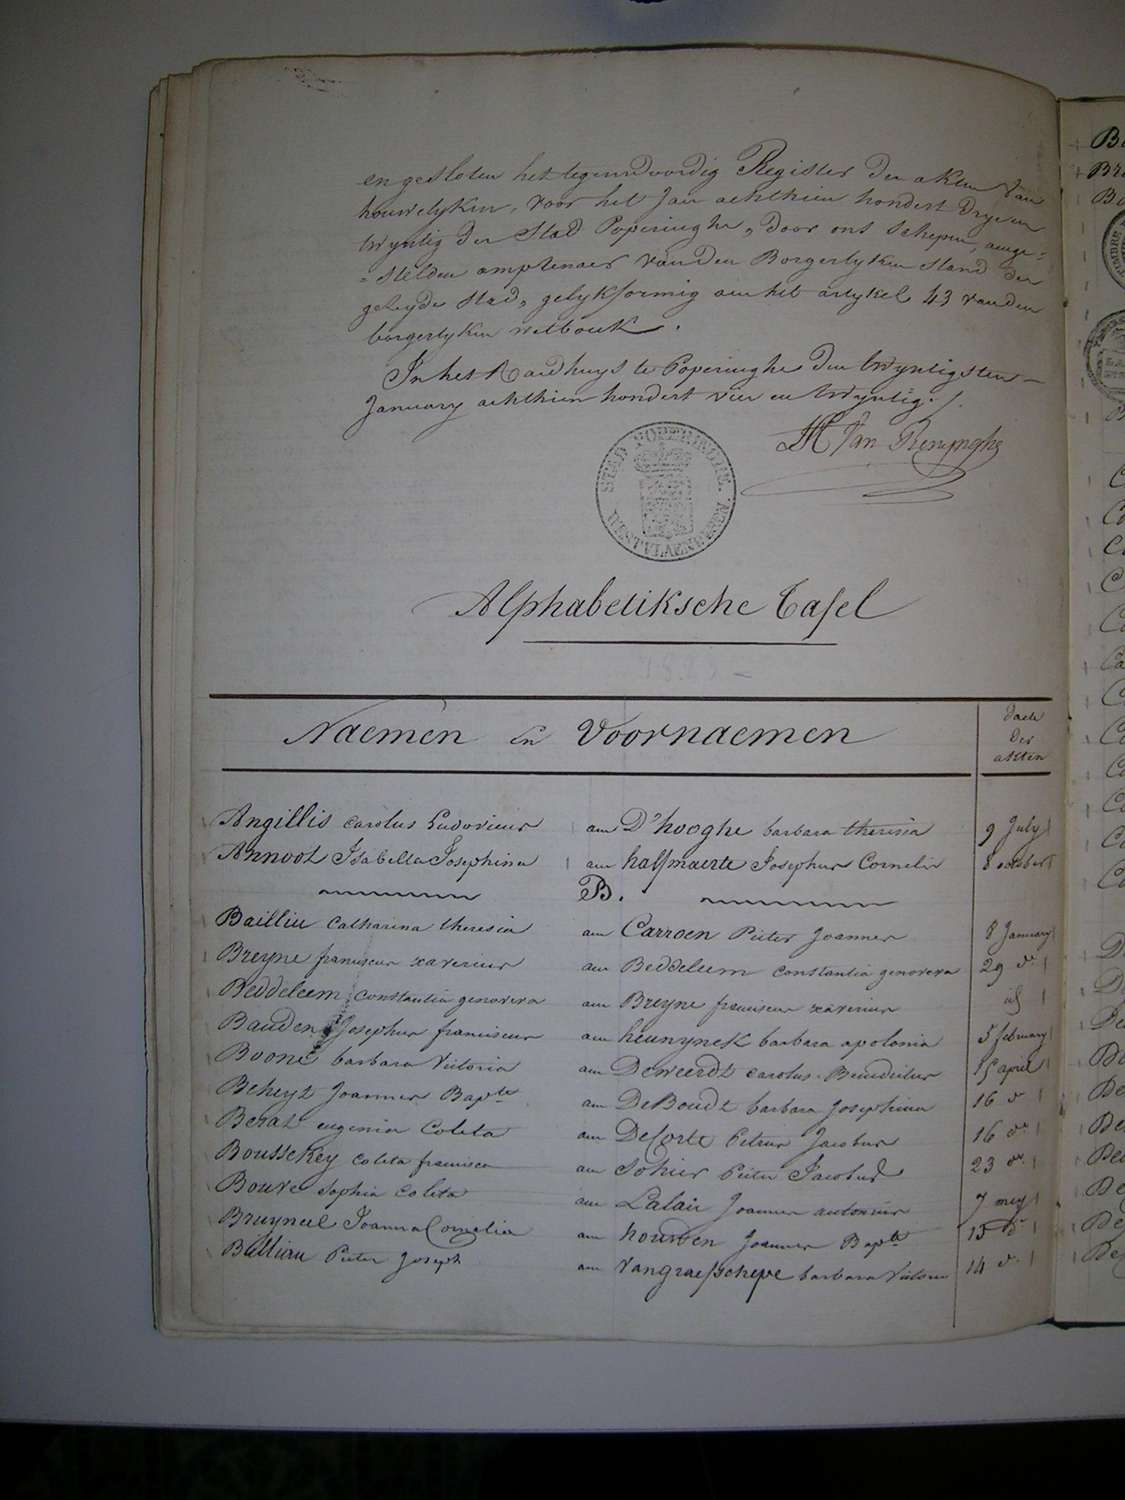 en gesloten het tegenwoordig Register der akten van
houwelyken, voor het Jaer achthien hondert drye en
twyntig der Stad Poperinghe, door ons Schepen, aenge=
=stelden amptenaer van den Borgerlyken Stand der
zelve Stad, gelykformig aen het artykel 43 van den
borgerlyken wetbouk.
In het Raedhuys te Poperinghe den twyntigsten
January achthien hondert vier en twyntig.
Van Renynghe
STAD POPERINGHE.
WESTVLAENDEREN.
Alphabetiksche Tafel
1823
Naemen en Voornaemen
daete der akten
Angillis Carolus Ludovicus aen D'hooghe barbara theresia 9 July
Annoot Isabella Josephina aen halfmaerte Josephus Cornelis 8 october
B.
Bailliu Catharina theresia aen Carroen Pieter Joannes 8 January
Breyne franciscus xaverius aen Beddeleem constantia genoveva 29 do
Beddeleem constantia genoveva aen Breyne franciscus xaverius id
Bauden Josephus franciscus aen heunynck barbara apolonia 5 february
Boone barbara Victoria aen Deweerdt carolus Benedictus 15 april
Beheyt Joannes Bapte aen DeBoudt barbara Josephina 16 do
Berat eugenia Coleta aen DeCorte Petrus Jacobus 16 do
Boussekey coleta francisca aen Sohier Pieter Jacobus 23 do
Bouve Sophia Coleta aen Lalair Joannes antonius 7 mey
Bruyneel Joanna Cornelia aen houwen Joannes Bapte 13 do
Bulliau Pieter Joseph aen Vangraefschepe barbara Victoria 14 do